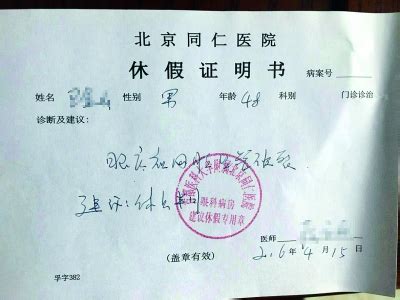 北京同仁医院
休假证明书
病案号
姓名 性别 男 年龄 48 科别 门诊诊治
诊断及建议:
建议:休
首都医科大学附属北京同仁医院
眼科病房
建议休假专用章
医师
(盖章有效)
2016年4月15日
孚字382